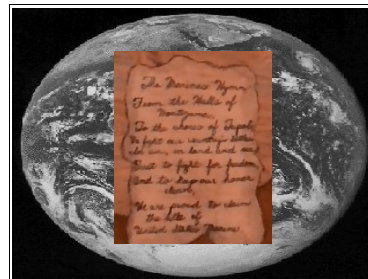 The Marines Hymn
From the Halls of
Montezuma,
To the shores of Tripoli
We fight our country's battles
in air, on land and sea
First to fight for freedom
And to keep our honor
clean,
We are proud to claim
the title of
United States Marine